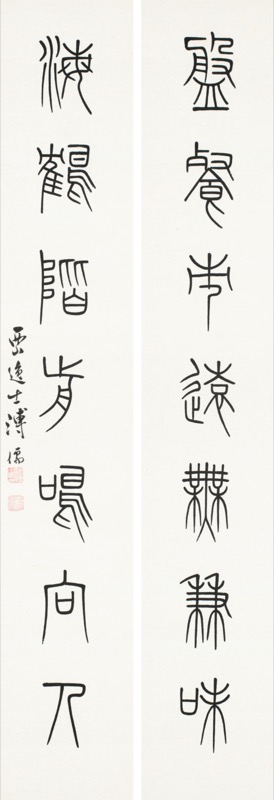 盤餐市遠無兼味
海鶴階前鳴向人
西山逸士溥儒